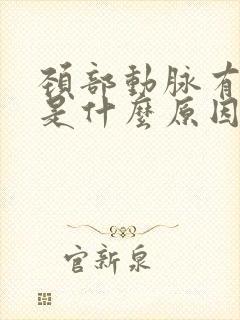 頸部動脉有
是什麽原因
官新泉